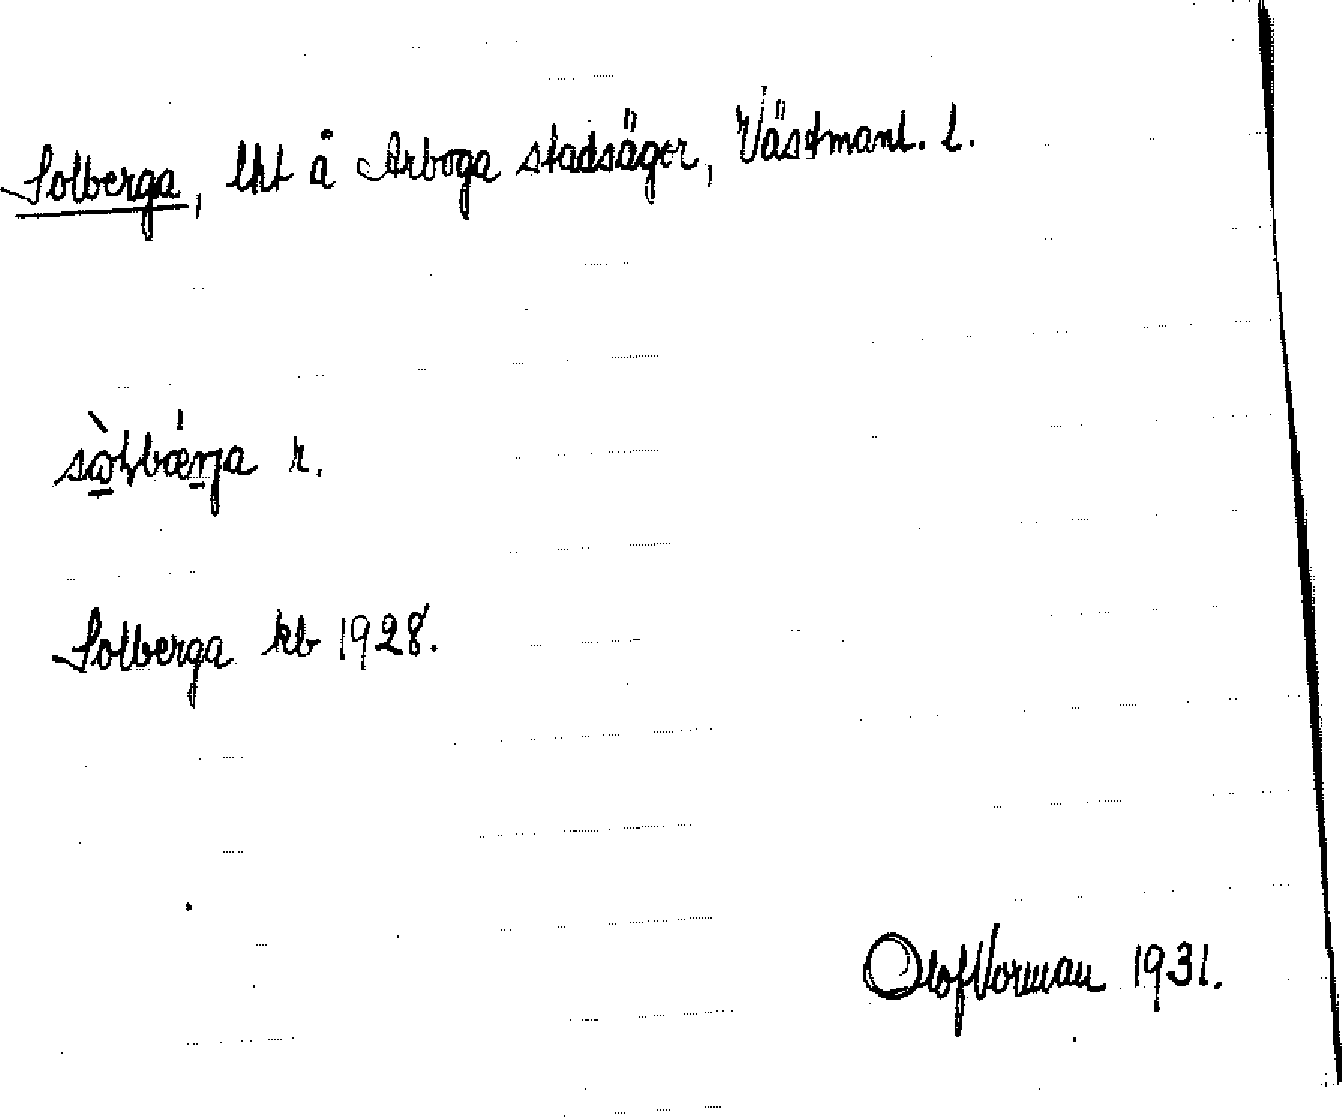 Solberga, lht å Arboga stadsäger, Västmanl. l.
sòlbǽrja r.
Solberga kb 1928.
Olof Vorman 1931.